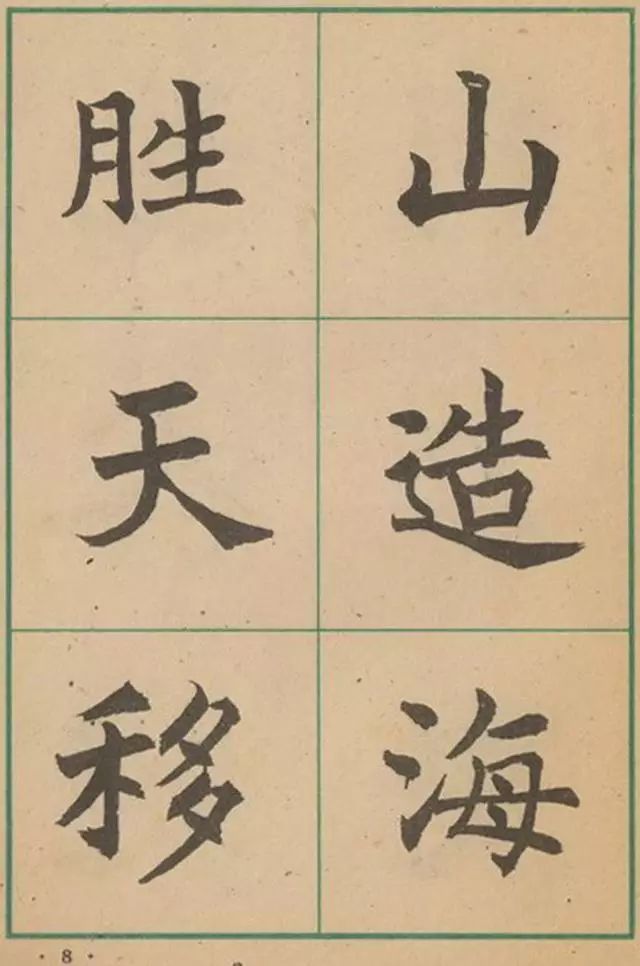 山造海
胜天移
· 8 ·